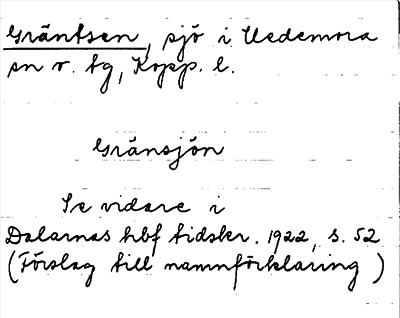 Gräntsen, sjö i Hedemora
sn o. tg, Kopp. l.
Gränsjön
Se vidare i
Dalarnas hbf tidskr. 1922, s. 52
(Förslag till namnförklaring)